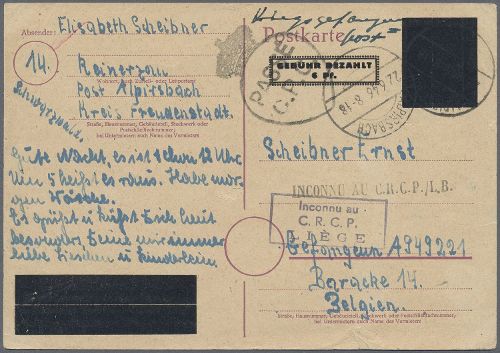 Absender: Elisabeth Scheibner
14.
Rainerzom
Wohnort, auch Zustell- oder Leitpostamt
Post Alpirsbach
Kreis Freudenstadt.
Schwarzwald.
Straße, Hausnummer, Gebäudeteil, Stockwerk oder
Postschließfachnummer;
bei Untermietern auch Name des Vermieters
Gute Nacht, es ist schon 12 Uhr
Um 5 heißt es raus. Habe mor-
gen Wäsche.
Es grüßt u. küßt Dich heut
besonders Deine mir immer
liebe Lieschen u. Kinderlein
Kriegsgefangenen
post
Postkarte
GEBÜHR BEZAHLT
6 Pf.
PASSE
22.6.46 8-18
ALPIRSBACH
Scheibner Ernst
INCONNU AU C.R.C.P./L.B.
Inconnu au
C.R.C.P.
LIÈGE
Gefangenen A949221
Baracke 14.
Belgien.
Straße, Hausnummer, Gebäudeteil, Stockwerk oder Postschließfachnummer;
bei Untermietern auch Name des Vermieters